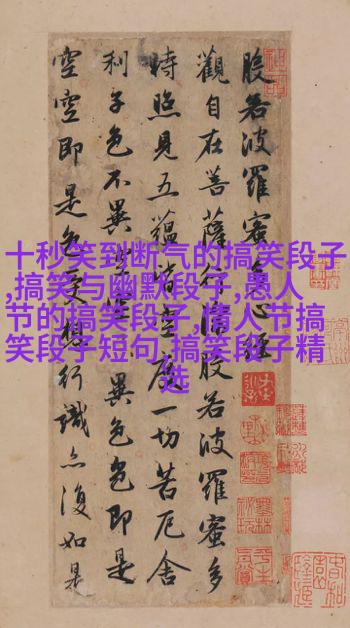 般若波羅蜜多心經
觀自在菩薩行深般若波羅蜜多
時照見五蘊皆空度一切苦厄舍
利子色不異空異色色即是
空空即是色受想行識亦復如是
十秒笑到断气的搞笑段子
,搞笑与幽默段子,愚人
节的搞笑段子,情人节搞
笑段子短句,搞笑段子精
选